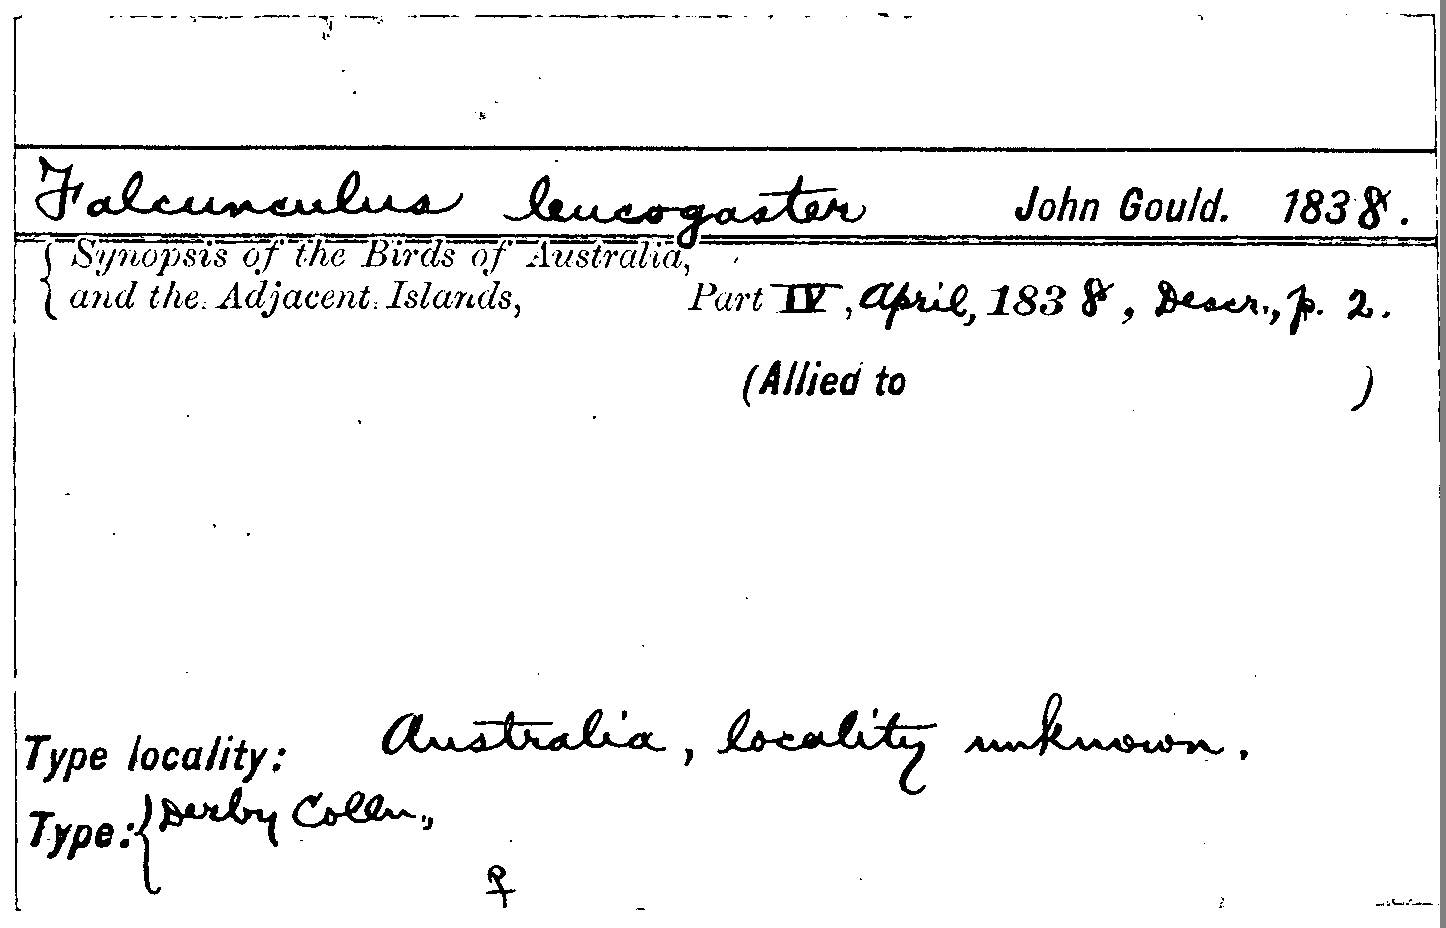 Falcunculus leucogaster John Gould. 1838.
{Synopsis of the Birds of Australia,
and the Adjacent Islands, Part IV, April, 1838, Descr., p. 2.
(Allied to )
Type locality: Australia, locality unknown.
Type: {Derby Colln.,
♀